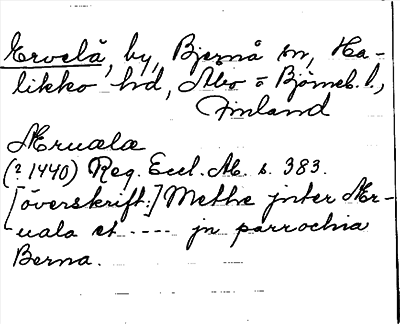 Ervelä, by, Bjernå sn, Ha-
likko hd, Åbo o Björneb. l.,
Finland
Æruala
(? 1440) Reg. Eccl. Ab. s. 383.
[överskrift:] Methe jnter Ær-
uala et ---- jn parrochia
Berna.